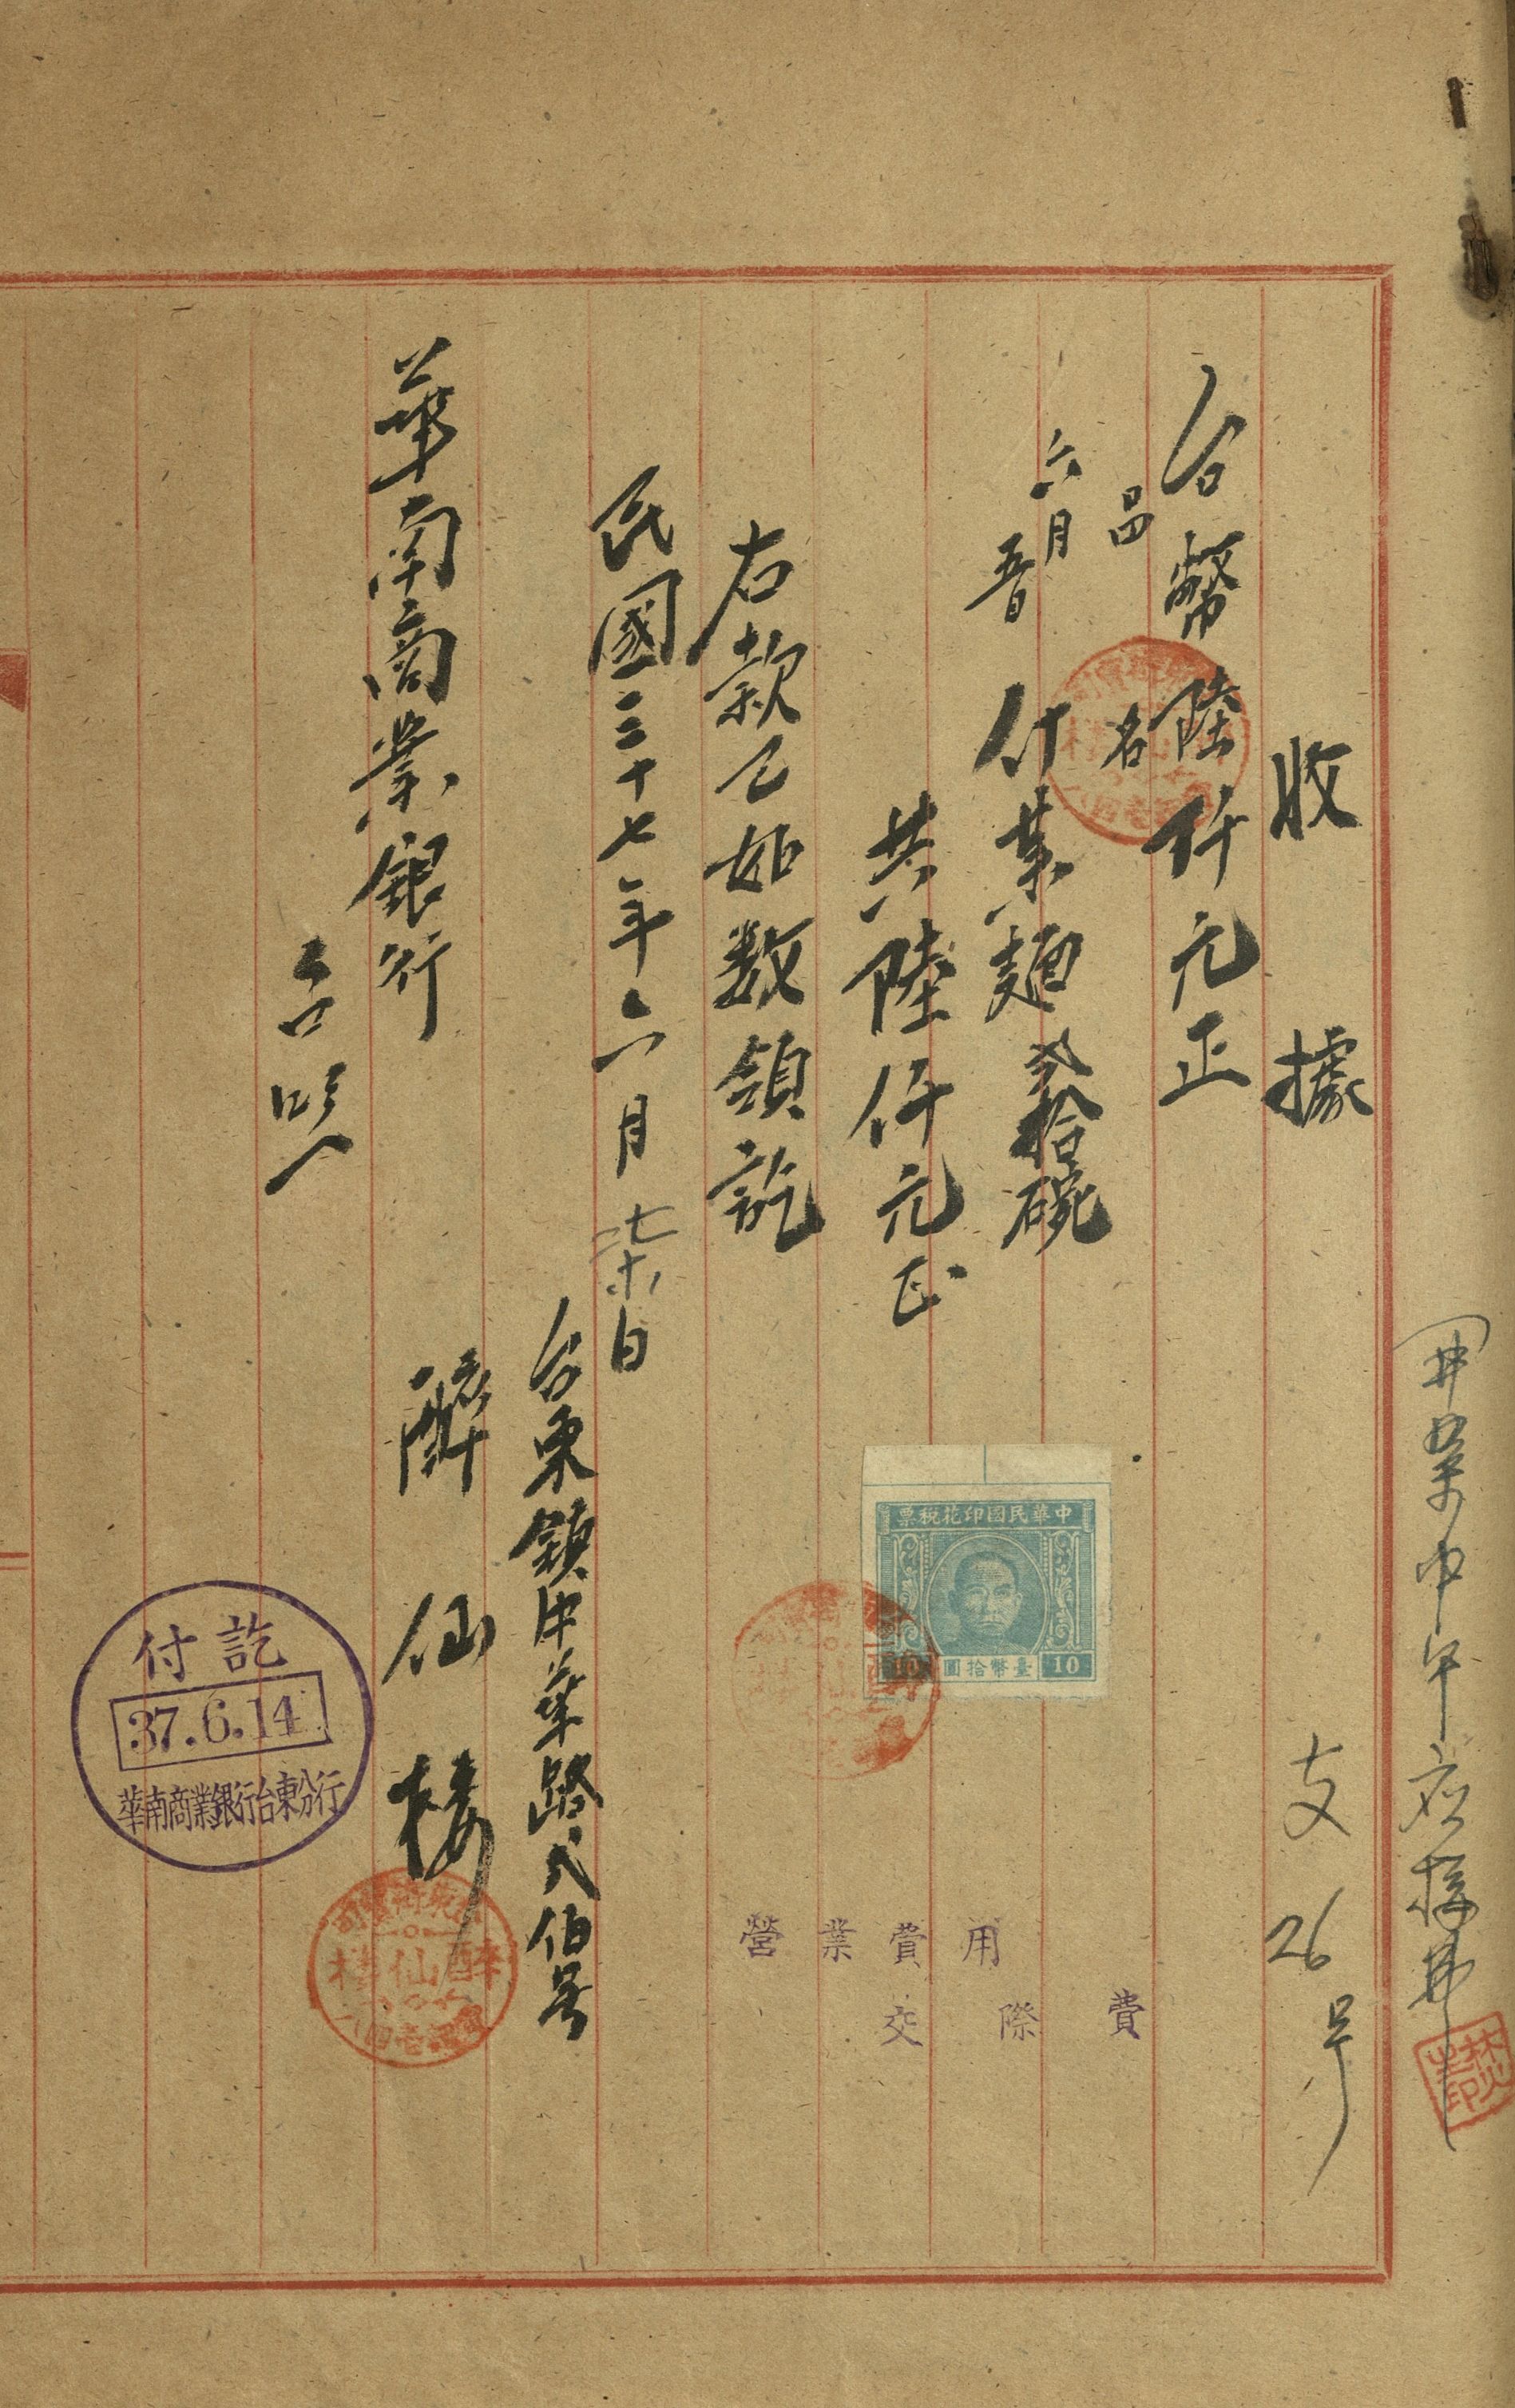 開業中午應接費
收據
支26号
台幣陸仟元正
品名
六月
五日
什菜麵貳拾碗
共陸仟元正
右款已如数領訖
民國三十七年六月柒日
台東鎮中華路弍佰号
醉仙楼
華南商業銀行
台照
中華民國印花税票
10
臺幣拾圓
營業費用
交際費
付訖
37.6.14
華南商業銀行台東分行
醉仙樓